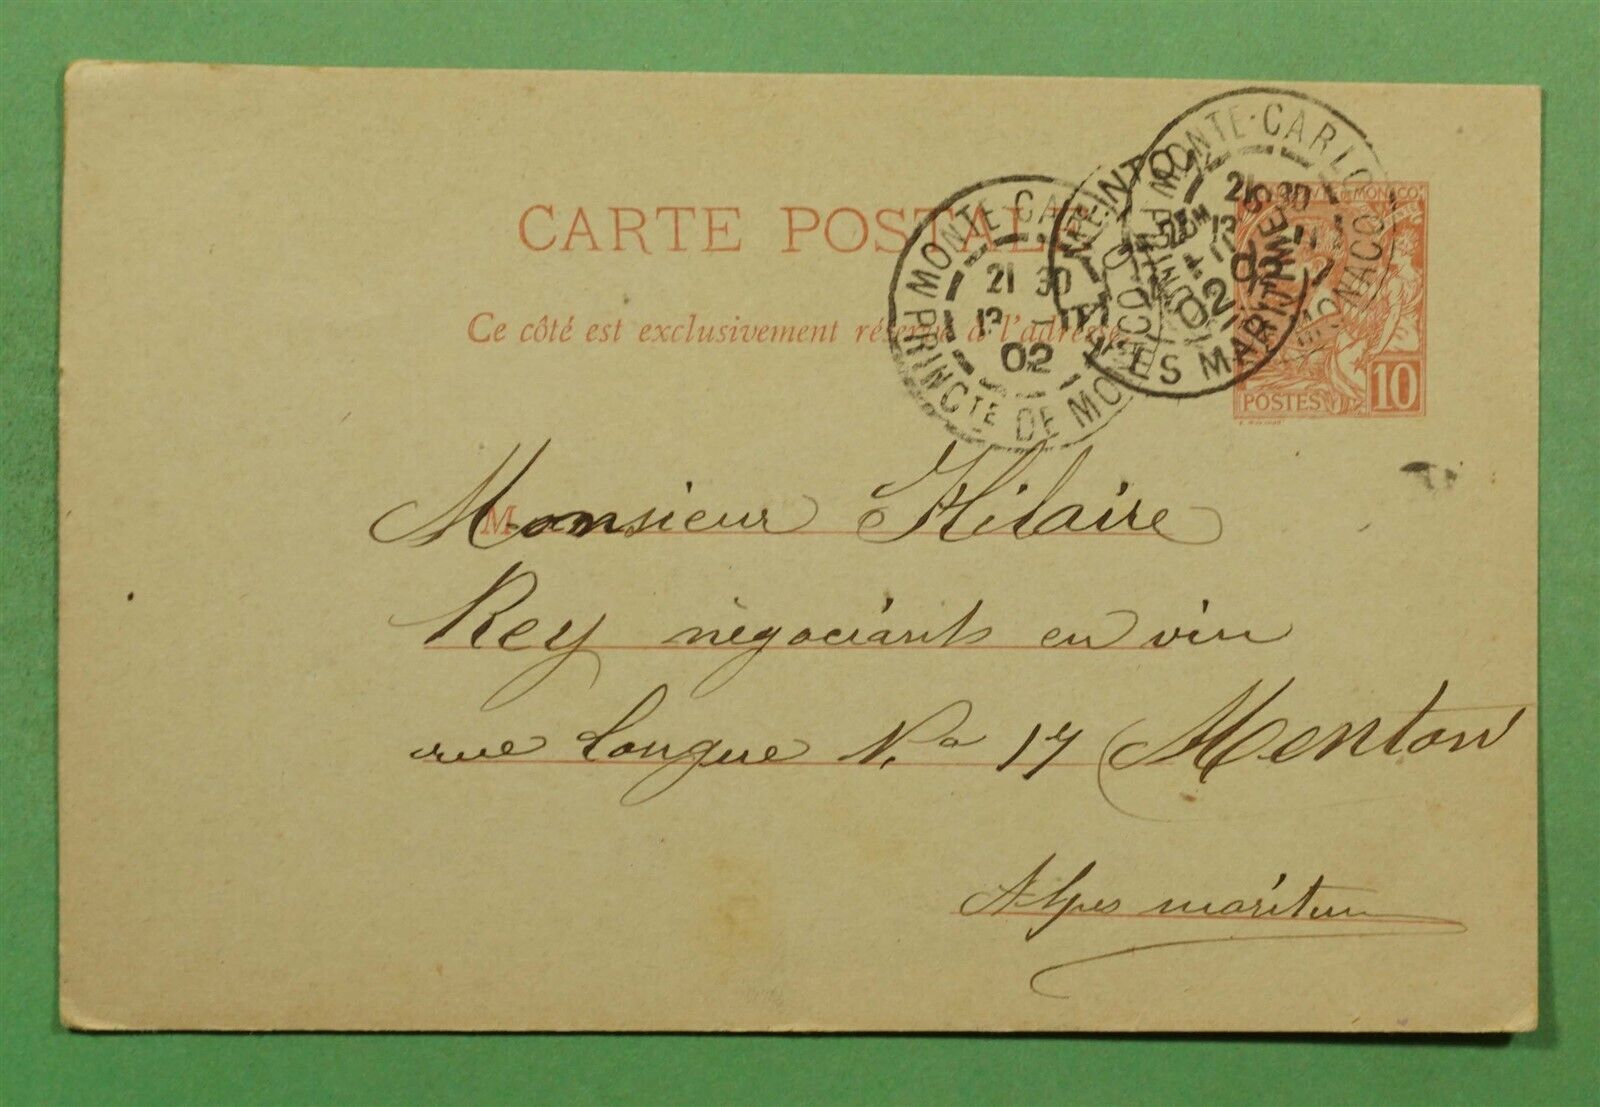 CARTE POSTALE
Ce côté est exclusivement réservé à l'adresse
MONTE-CARLO
21 30
13
02
PRINCTE DE MONACO
MENTON
02
ALPES MARITIMES
MONTE-CARLO
21 30
13
02
MONACO
DE MONACO
POSTES 10
M
Monsieur Hilaire
Rey négociants en vin
rue Longue No 17 Menton
Alpes maritimes